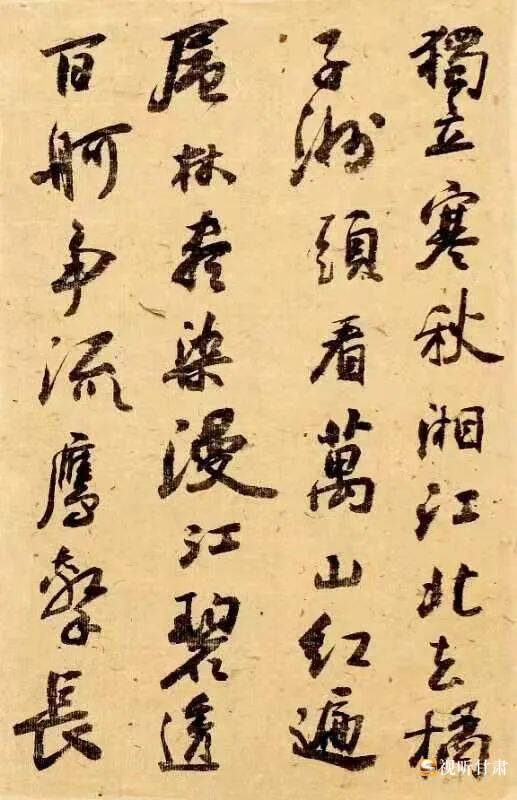 獨立寒秋湘江北去橘
子洲頭看萬山紅遍
層林盡染漫江碧透
百舸争流鷹擊長
视听甘肃